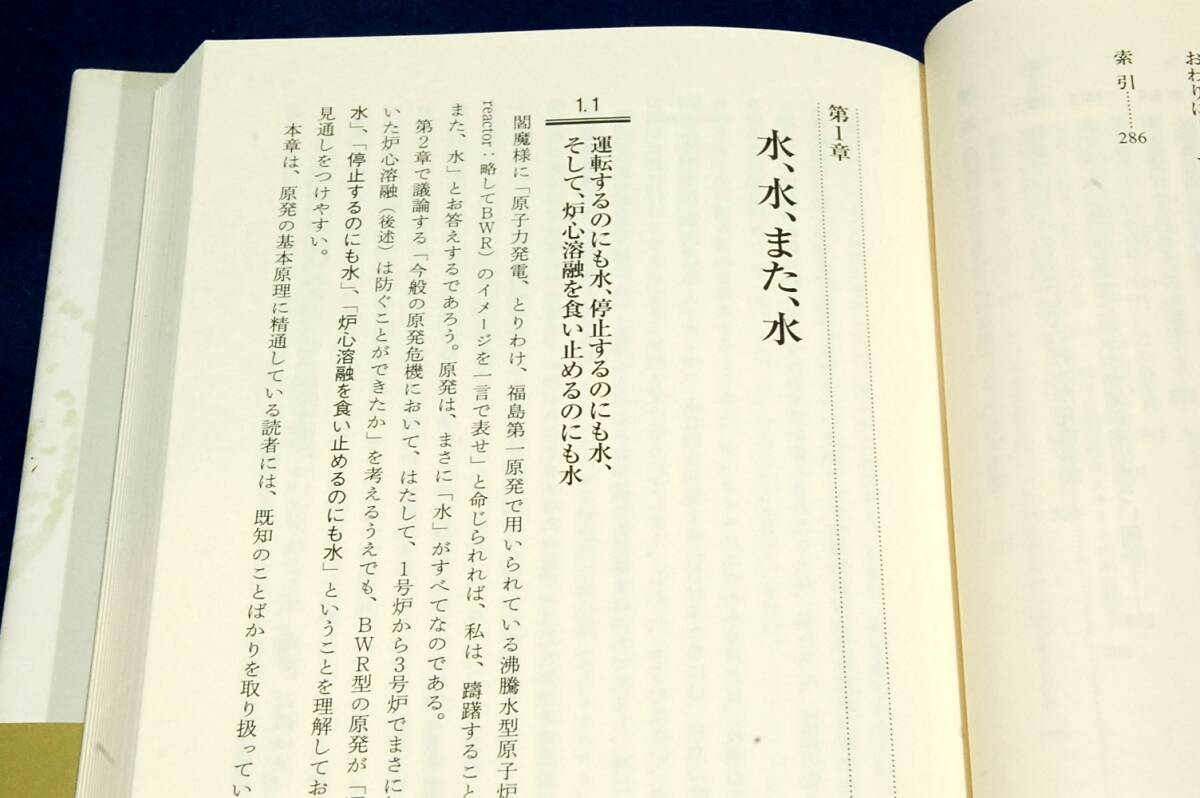 おわりに
索引……286
第1章
水、水、また、水
1.1
運転するのにも水、停止するのにも水、
そして、炉心溶融を食い止めるのにも水
閻魔様に「原子力発電、とりわけ、福島第一原発で用いられている沸騰水型原子炉
reactor：略してBWR）のイメージを一言で表せ」と命じられれば、私は、躊躇すること
また、水」とお答えするであろう。原発は、まさに「水」がすべてなのである。
第2章で議論する「今般の原発危機において、はたして、1号炉から3号炉でまさに
いた炉心溶融（後述）は防ぐことができたか」を考えるうえでも、BWR型の原発が「
水」、「停止するのにも水」、「炉心溶融を食い止めるのにも水」ということを理解してお
見通しをつけやすい。
本章は、原発の基本原理に精通している読者には、既知のことばかりを取り扱ってい